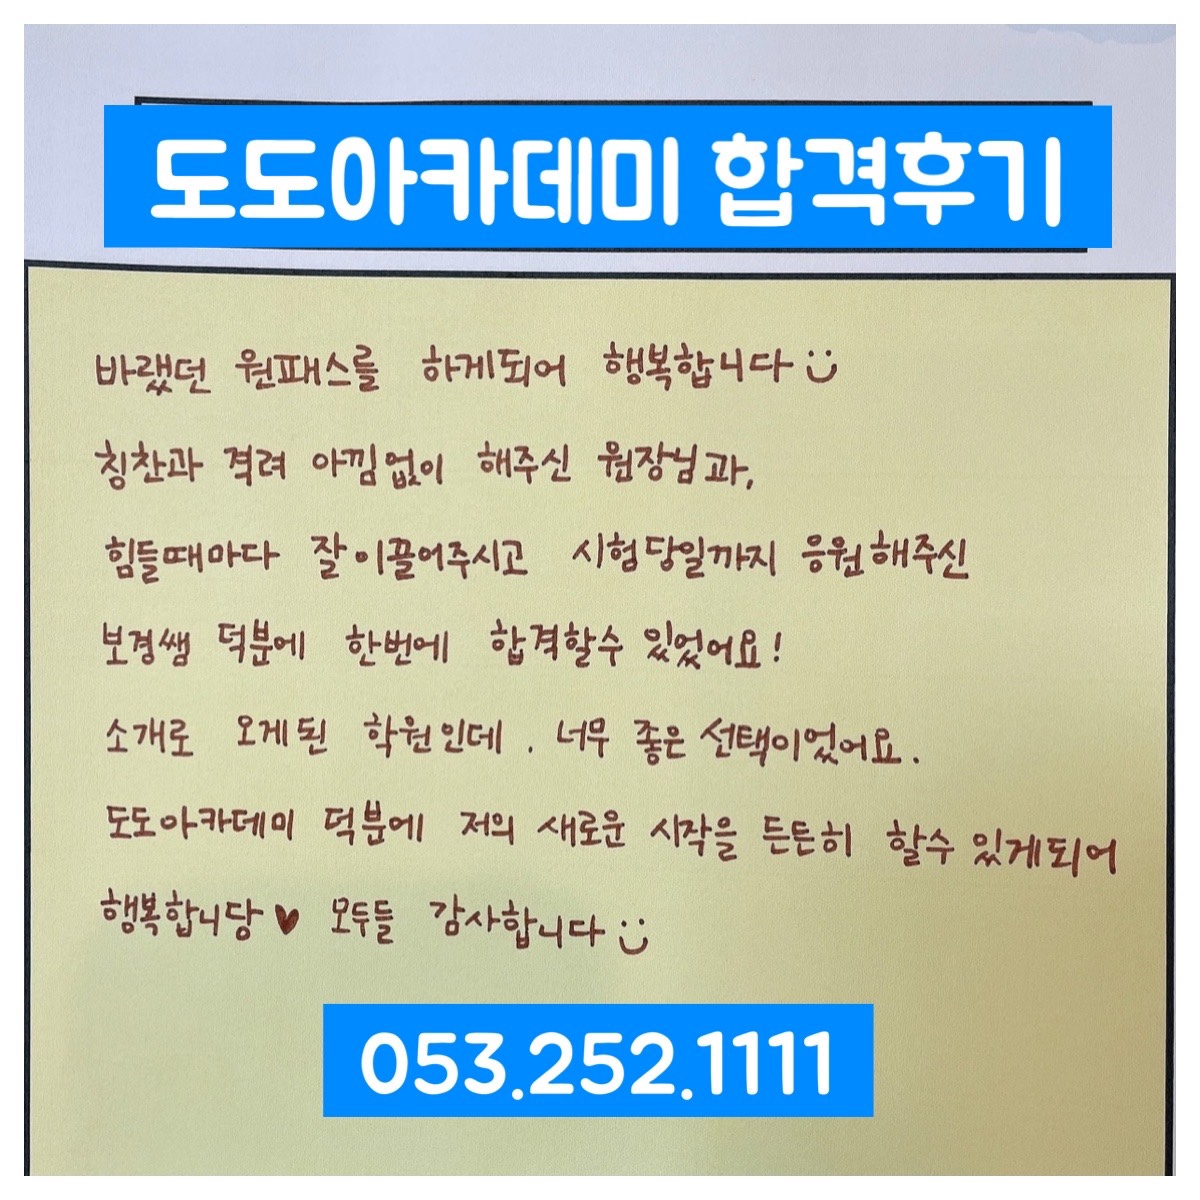 도도아카데미 합격후기
바랬던 원패스를 하게되어 행복합니다
칭찬과 격려 아낌없이 해주신 원장님과,
힘들때마다 잘 이끌어주시고 시험당일까지 응원해주신
보경쌤 덕분에 한번에 합격할수 있었어요!
소개로 오게된 학원인데. 너무 좋은 선택이었어요.
도도아카데미 덕분에 저의 새로운 시작을 든든히 할수 있게되어
행복합니당♥ 모두들 감사합니다
053.252.1111